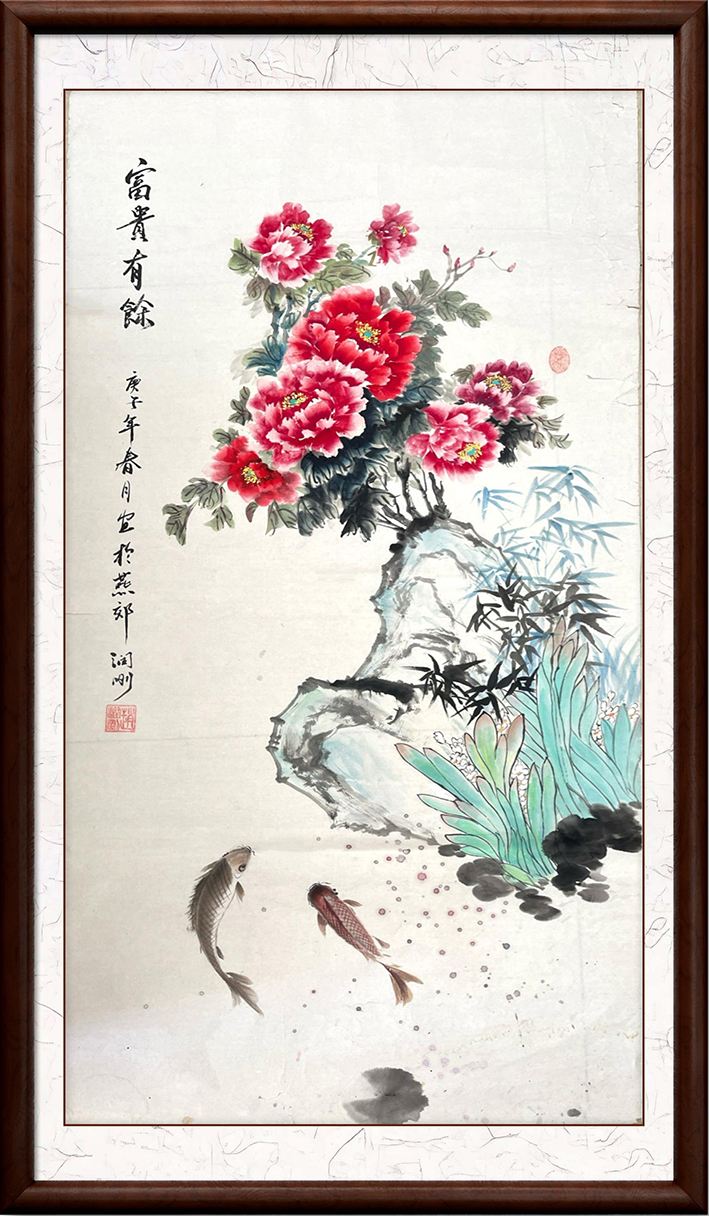 富貴有餘
庚子年春月写於燕郊 润刚